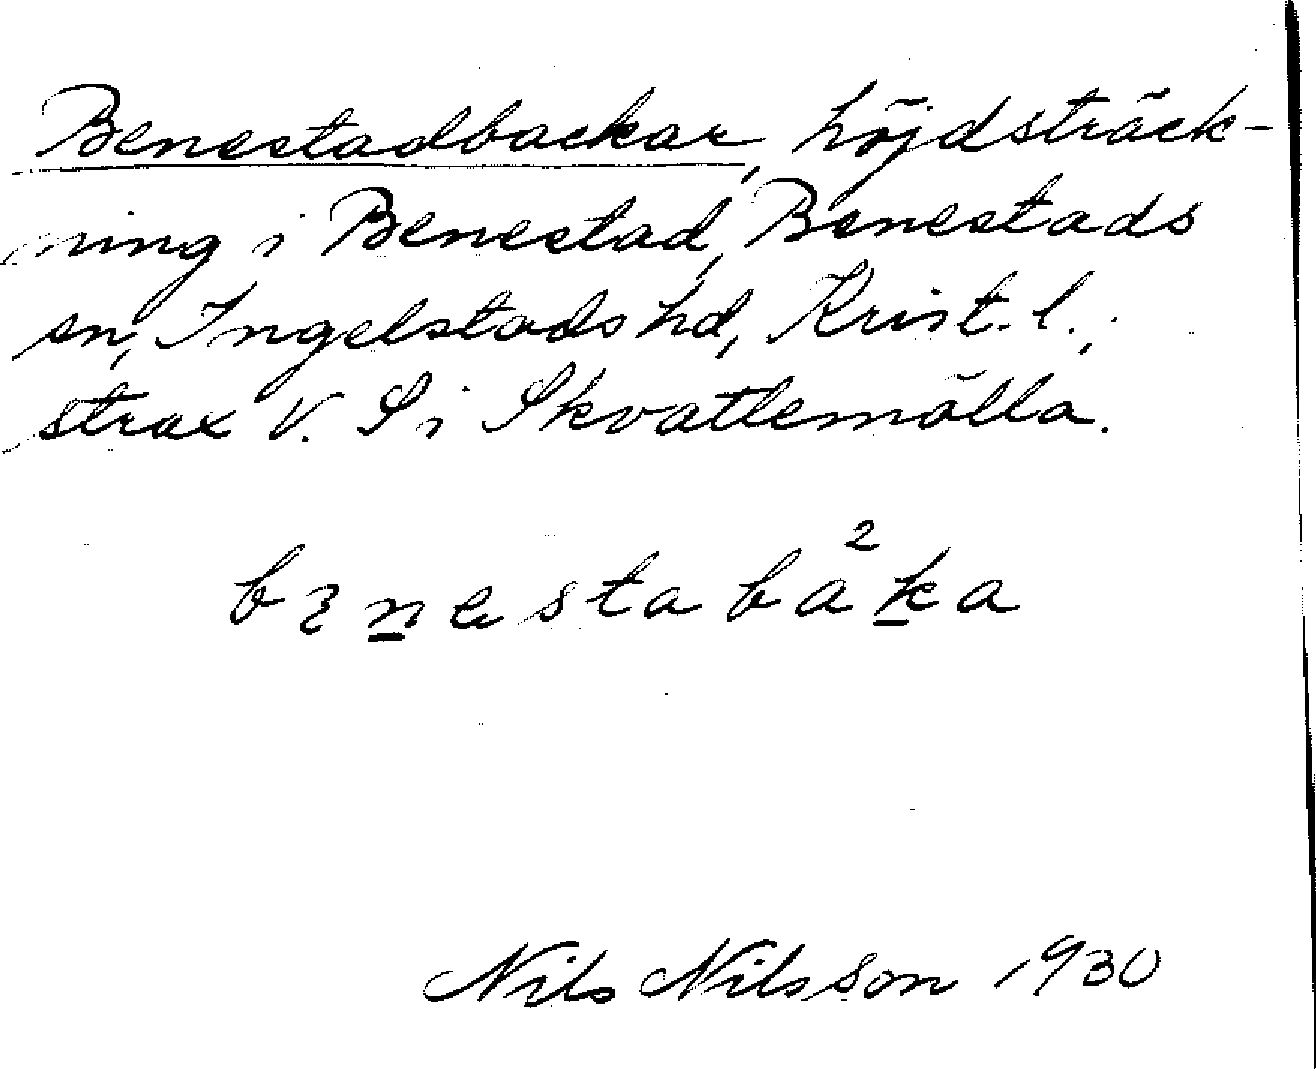 Benestadbackar, höjdsträck-
ning i Benestad, Benestads
sn, Ingelstads hd, Krist. l.,
strax V. S i Skvattemölla.
bɛnestaba²ka
Nils Nilsson 1930